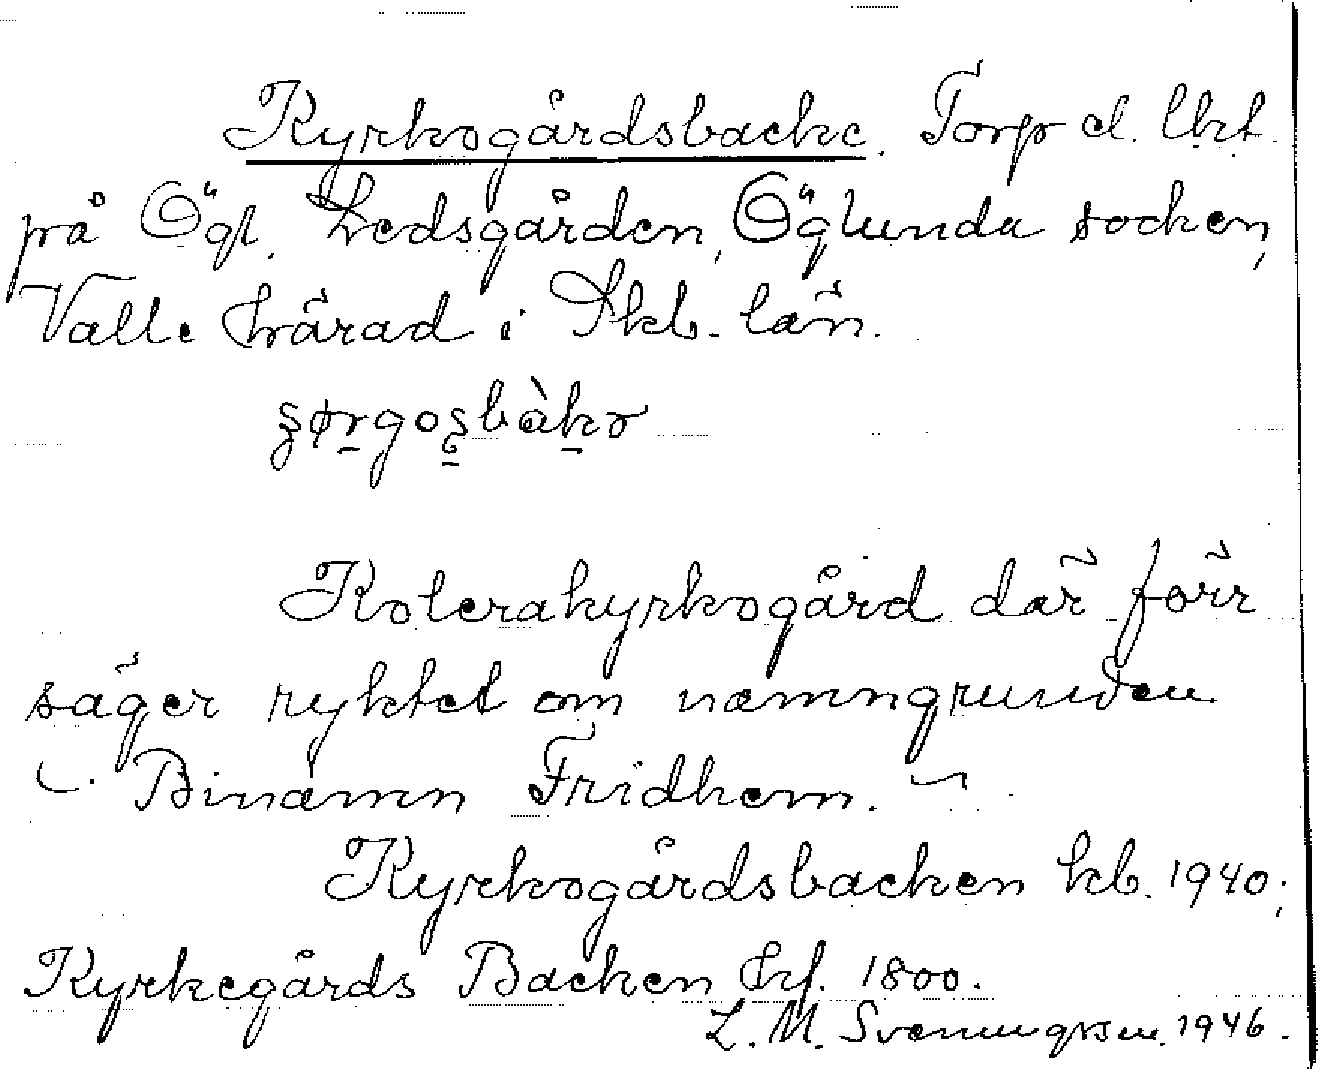 Kyrkogårdsbacke. Torp el. lht
på Ögl. Ledsgården, Öglunda socken,
Valle härad i Skb. län.
Kolerakyrkogård där förr
säger ryktet om namngrunden
Binamn Fridhem.
Kyrkogårdsbacken kb. 1940;
Kyrkegårds Backen hf. 1800.
L. M. Svenungsson 1946.